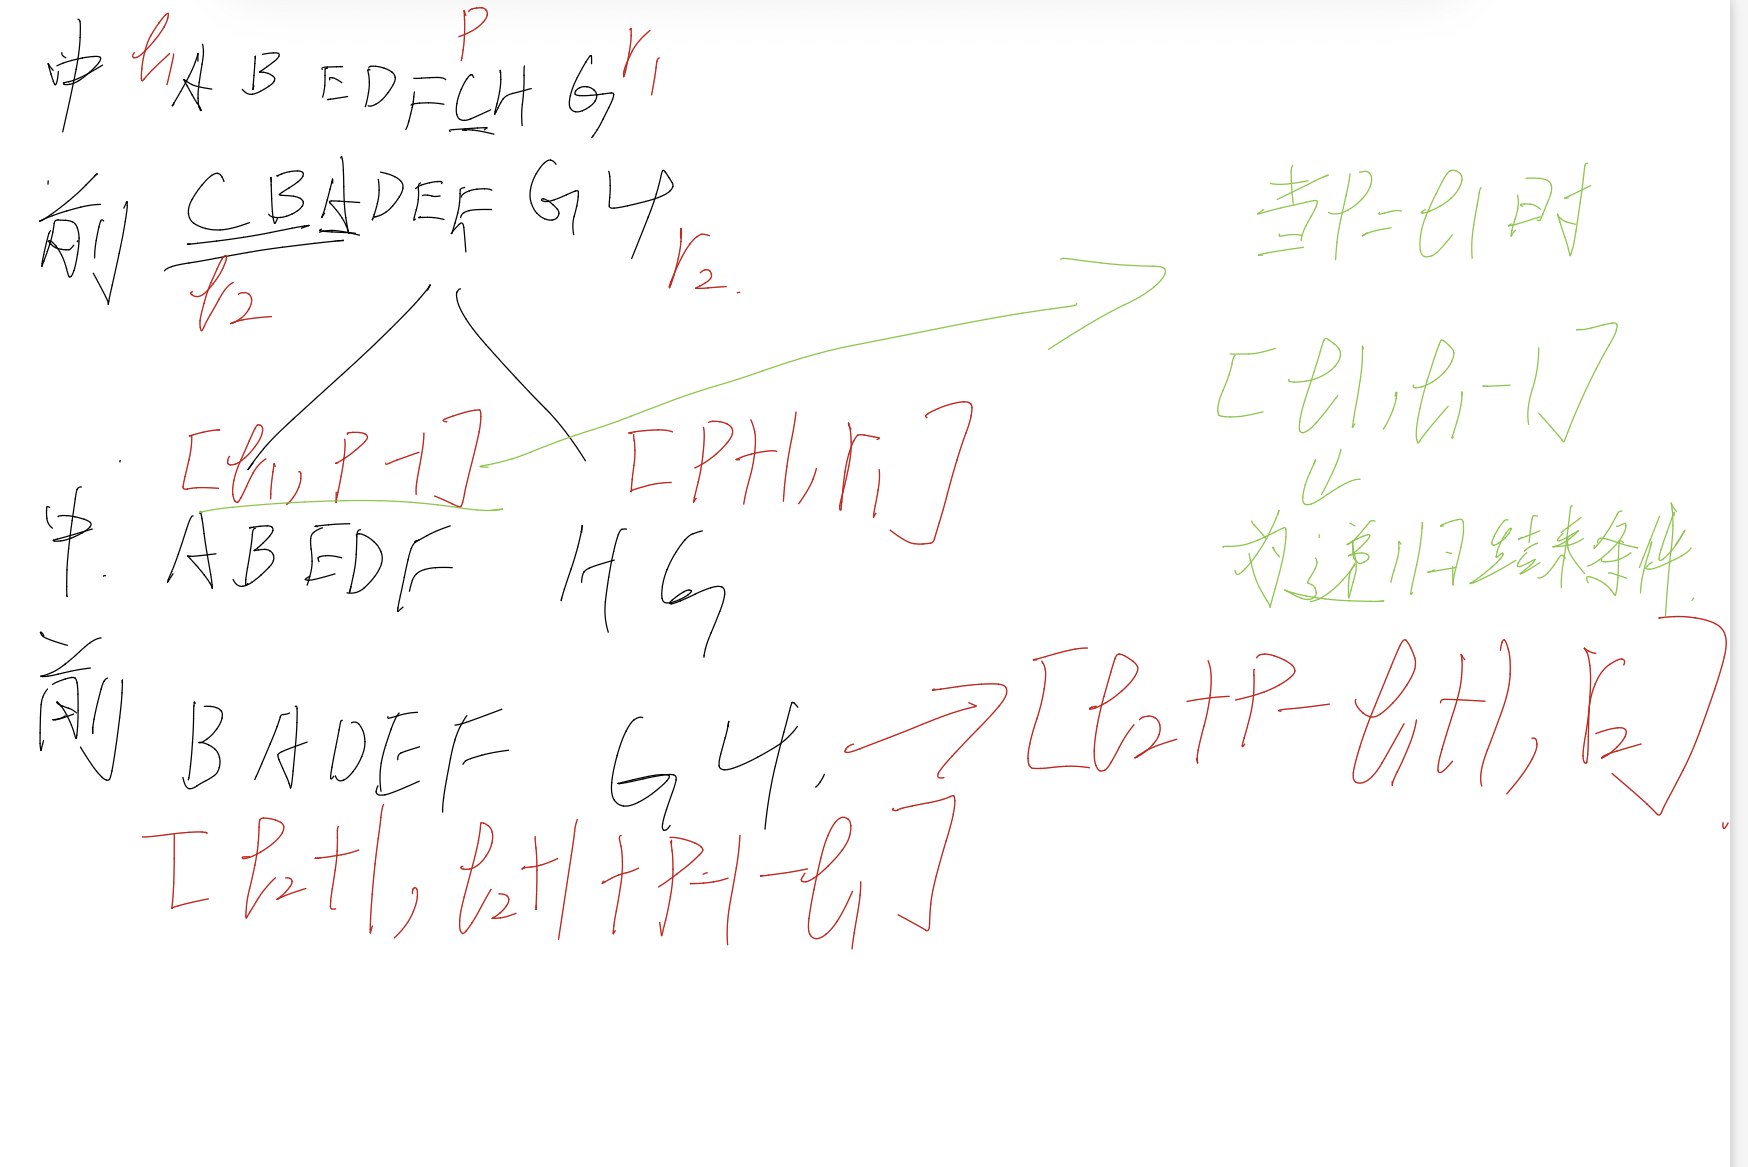 中 l1 A B E D F C H G r1
p
前 C B A D E F G H
l2 r2.
当P=l1时
[l1, l1-1]
为递归结束条件.
[l1, P-1] [P+1, r1]
中. A B E D F H G
前 B A D E F G H. → [l2+P-l1+1, r2].
[l2+1, l2+1+P-1-l1]